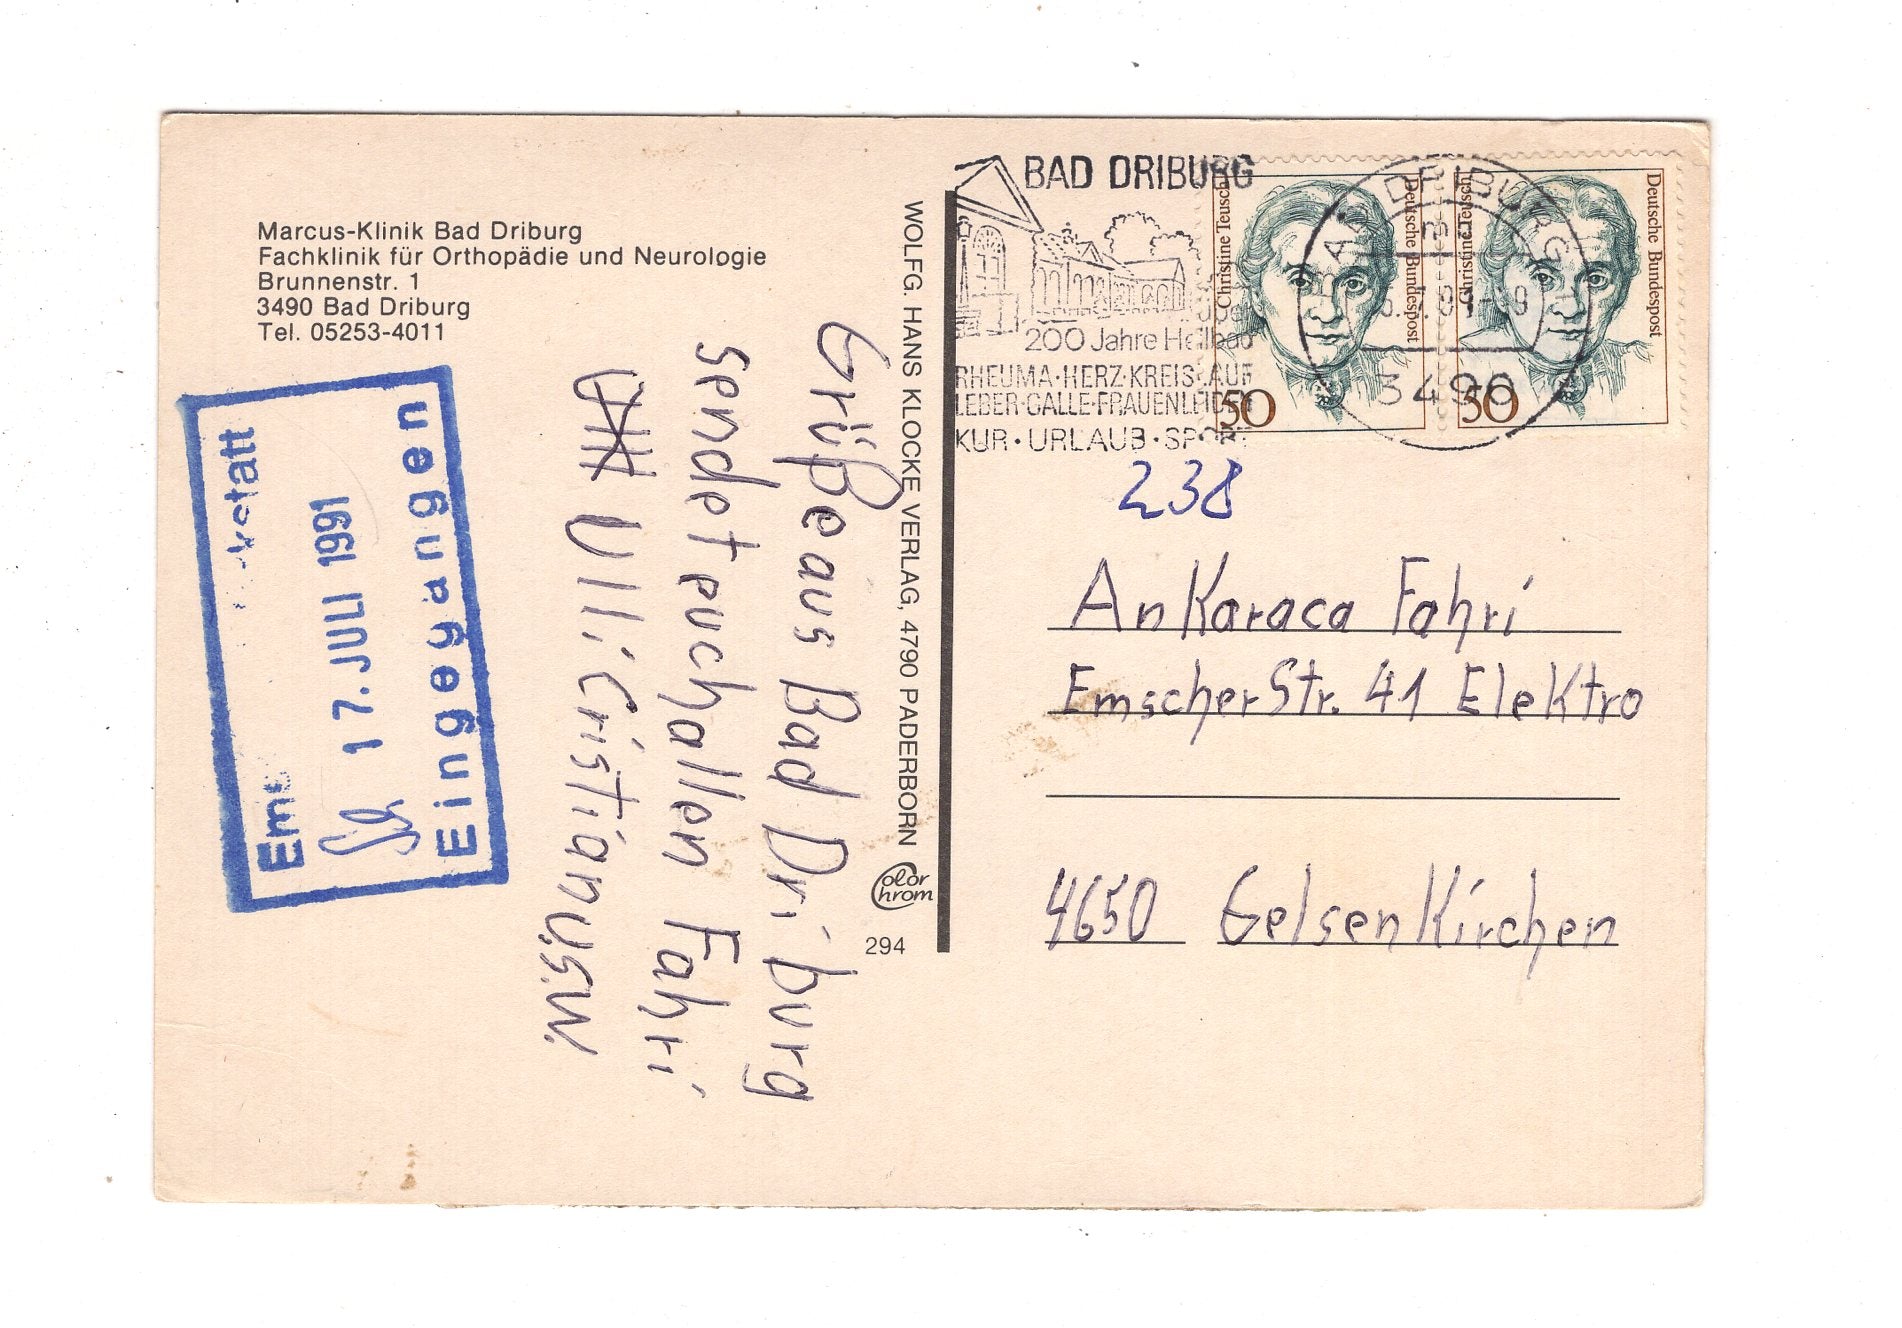 Marcus-Klinik Bad Driburg
Fachklinik für Orthopädie und Neurologie
Brunnenstr. 1
3490 Bad Driburg
Tel. 05253-4011
17. JULI 1991
Eingegangen
Grüße aus Bad Driburg
sendet euch allen Fahri
Ulli Cristian u.s.w.
WOLFG. HANS KLOCKE VERLAG, 4790 PADERBORN
Color Chrom
294
BAD DRIBURG
200 Jahre Heilbad
RHEUMA·HERZ·KREISLAUF
LEBER·GALLE·FRAUENLEIDEN
KUR·URLAUB·SPORT
Christine Teusch
Deutsche Bundespost
50
Christine Teusch
Deutsche Bundespost
50
BAD DRIBURG
3490
238
An Karaca Fahri
Emscher Str. 41 Elektro
4650 Gelsenkirchen